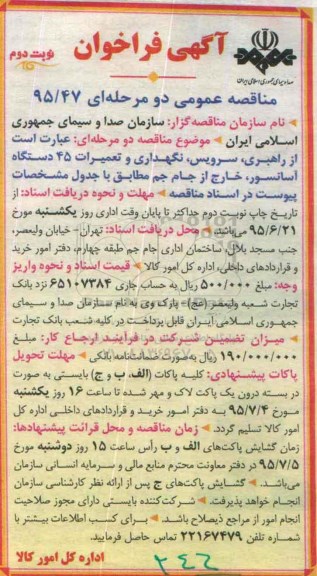 آگهی فراخوان
نوبت دوم
صدا و سیمای جمهوری اسلامی ایران
مناقصه عمومی دو مرحله‌ای ۹۵/۴۷
نام سازمان مناقصه‌گزار: سازمان صدا و سیمای جمهوری
اسلامی ایران موضوع مناقصه دو مرحله‌ای: عبارت است
از راهبری، سرویس، نگهداری و تعمیرات ۴۵ دستگاه
آسانسور، خارج از جام جم مطابق با جدول مشخصات
پیوست در اسناد مناقصه مهلت و نحوه دریافت اسناد: از
تاریخ چاپ نوبت دوم حداکثر تا پایان وقت اداری روز یکشنبه مورخ
۹۵/۶/۲۱ می‌باشد. محل دریافت اسناد: تهران - خیابان ولیعصر،
جنب مسجد بلال، ساختمان اداری جام جم طبقه چهارم، دفتر امور خرید
و قراردادهای داخلی، اداره کل امور کالا قیمت اسناد و نحوه واریز
وجه: مبلغ ۵۰۰/۰۰۰ ریال به حساب جاری ۶۵۱۰۷۳۸۴ نزد بانک
تجارت شعبه ولیعصر (عج) - پارک وی به نام سازمان صدا و سیمای
جمهوری اسلامی ایران قابل پرداخت در کلیه شعب بانک تجارت
میزان تضمین شرکت در فرآیند ارجاع کار: مبلغ
۱۹۰/۰۰۰/۰۰۰ ریال به صورت ضمانتنامه بانکی مهلت تحویل
پاکات پیشنهادی: کلیه پاکات (الف، ب و ج) بایستی به صورت
در بسته درون یک پاکت لاک و مهر شده تا ساعت ۱۶ روز یکشنبه
مورخ ۹۵/۷/۴ به دفتر امور خرید و قراردادهای داخلی اداره کل
امور کالا تسلیم گردد. زمان مناقصه و محل قرائت پیشنهادها:
زمان گشایش پاکت‌های الف و ب رأس ساعت ۱۵ روز دوشنبه مورخ
۹۵/۷/۵ در دفتر معاونت محترم منابع مالی و سرمایه انسانی سازمان
می‌باشد. گشایش پاکت‌های ج پس از ارائه نظر کارشناسی سازمان
انجام خواهد پذیرفت. شرکت‌کننده بایستی دارای مجوز صلاحیت
انجام امور از مراجع ذیصلاح باشد. برای کسب اطلاعات بیشتر با
شماره تلفن ۲۲۱۶۷۴۷۹ تماس حاصل فرمایید.
اداره کل امور کالا